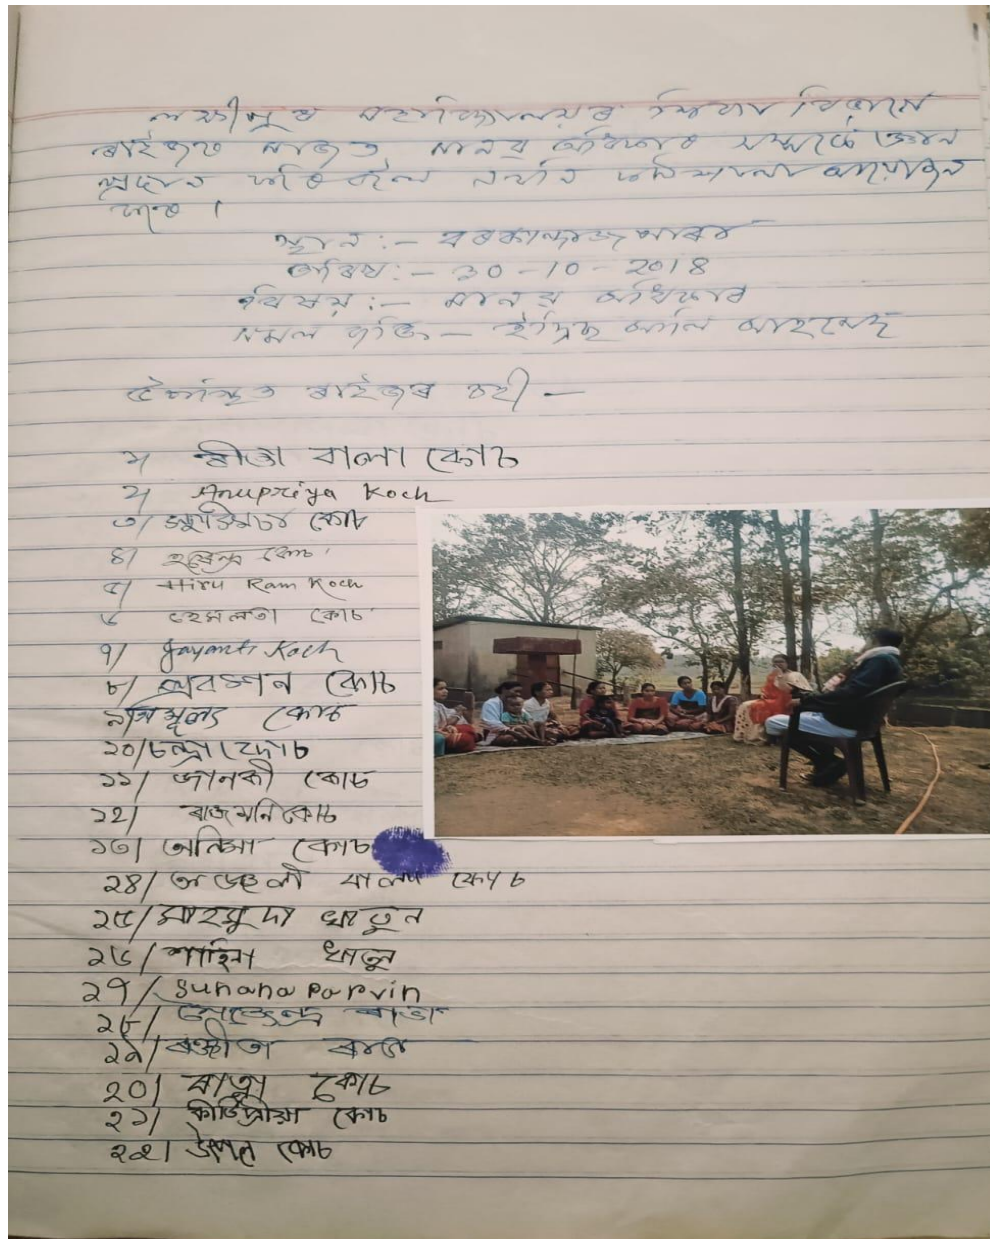 লক্ষীপুৰ মহাবিদ্যালয়ৰ শিক্ষা বিভাগে
ৰাইজৰ মাজত মানৱ অধিকাৰ সম্পৰ্কে জ্ঞান
প্ৰদান কৰিবলৈ এখনি কৰ্মশালা আয়োজন
কৰে ।
স্থান :-
তাৰিখ :- 30-10-2018
বিষয় :- মানৱ অধিকাৰ
সমল ব্যক্তি - ইদ্ৰিছ আলি আহমেদ
উপস্থিত ৰাইজৰ চহী -
১/ গীতা বালা কোচ
২/ Anupriya Koch
৩/ কোচ
৪/ কোচ
৫/ Hiru Ram Koch
৬/ হেমলতা কোচ
৭/ Jayanti Koch
৮/ কোচ
৯/ কোচ
১০/ চন্দ্ৰা কোচ
১১/ জানকী কোচ
১২/ ৰাজমনি কোচ
১৩/ অনিমা কোচ
১৪/ বালা কোচ
১৫/ মাহমুদা খাতুন
১৬/ শাহিনা খাতুন
১৭/ Suhana Parvin
১৮/ ৰাভা
১৯/ ৰঞ্জীতা ৰাভা
২০/ কোচ
২১/ কীৰ্তিপ্ৰীয়া কোচ
২২/ উৎপল কোচ